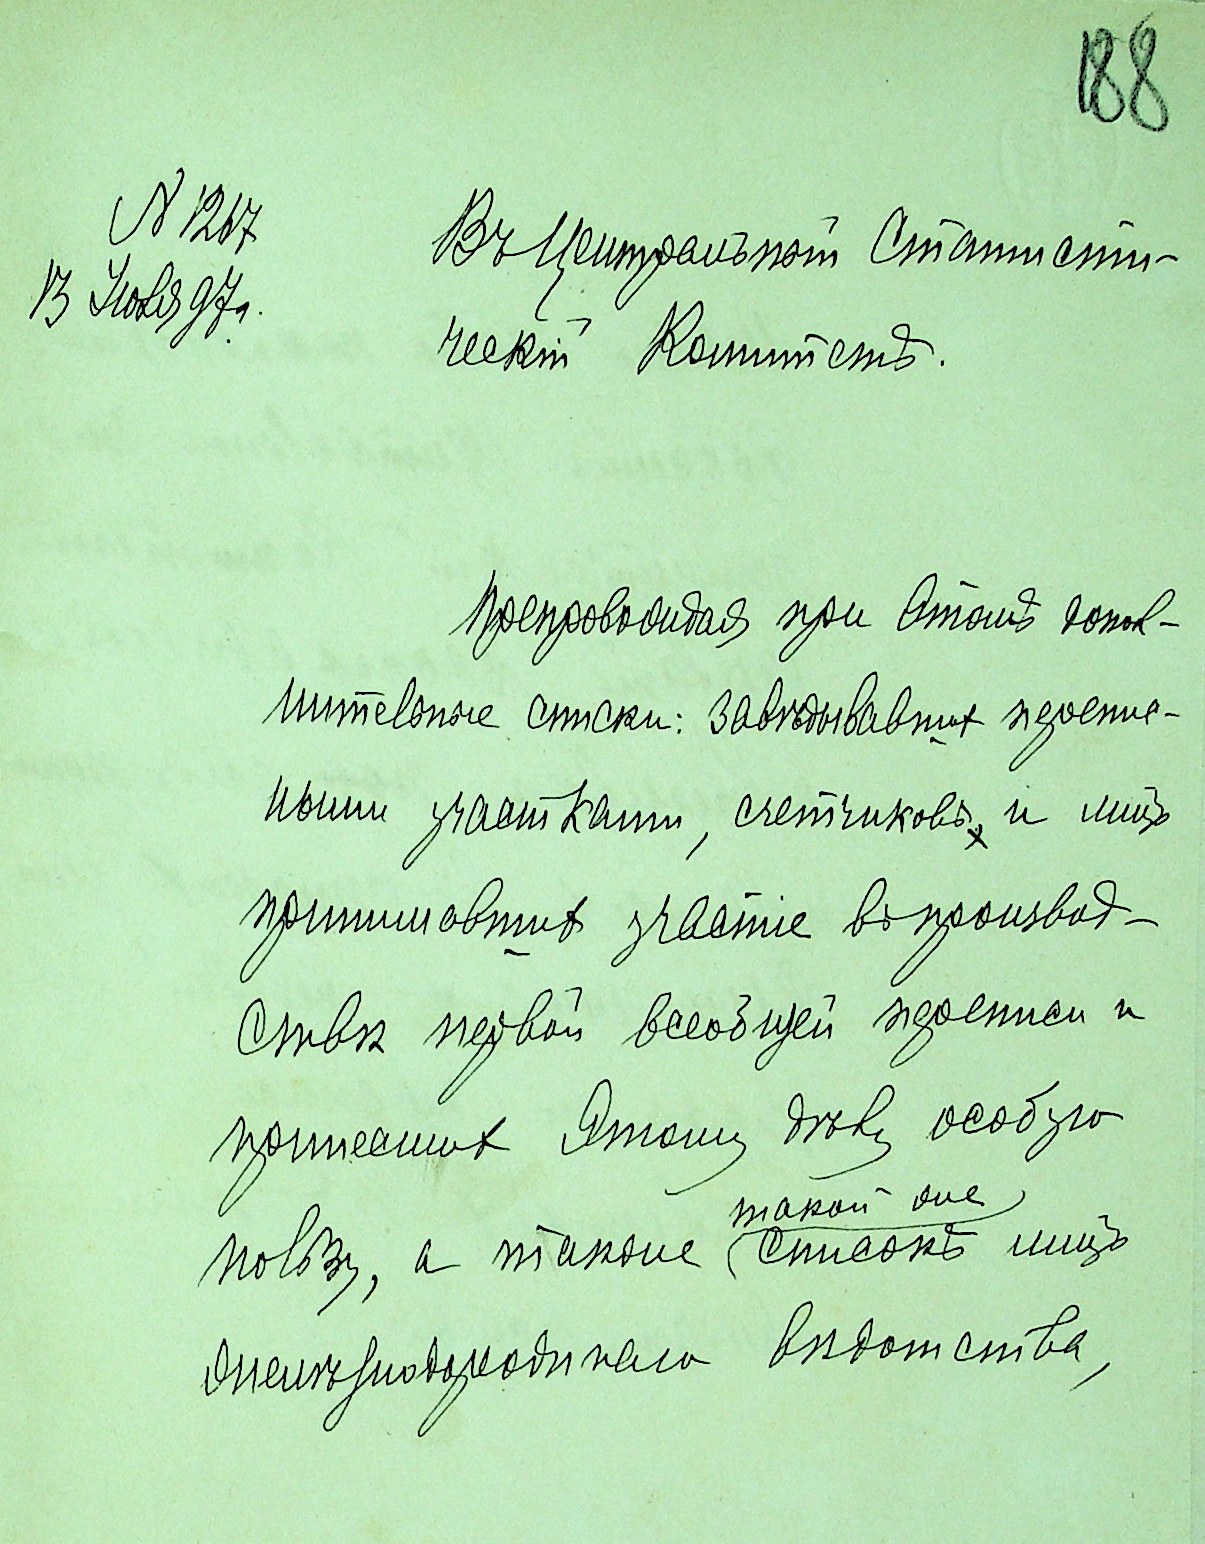 188
N 1267
13 Июня 97 г.
Въ Центральный Статисти-
ческій Комитетъ.
Препровождая при этомъ допол-
нительные списки: завѣдывавшихъ перепис-
ными участками, счетчиковъ, и лицъ
принимавшихъ участіе въ производ-
ствѣ первой всеобщей переписи и
принесшихъ этому дѣлу особую
такой же
пользу, а также списокъ лицъ
желѣзнодорожнаго вѣдомства,